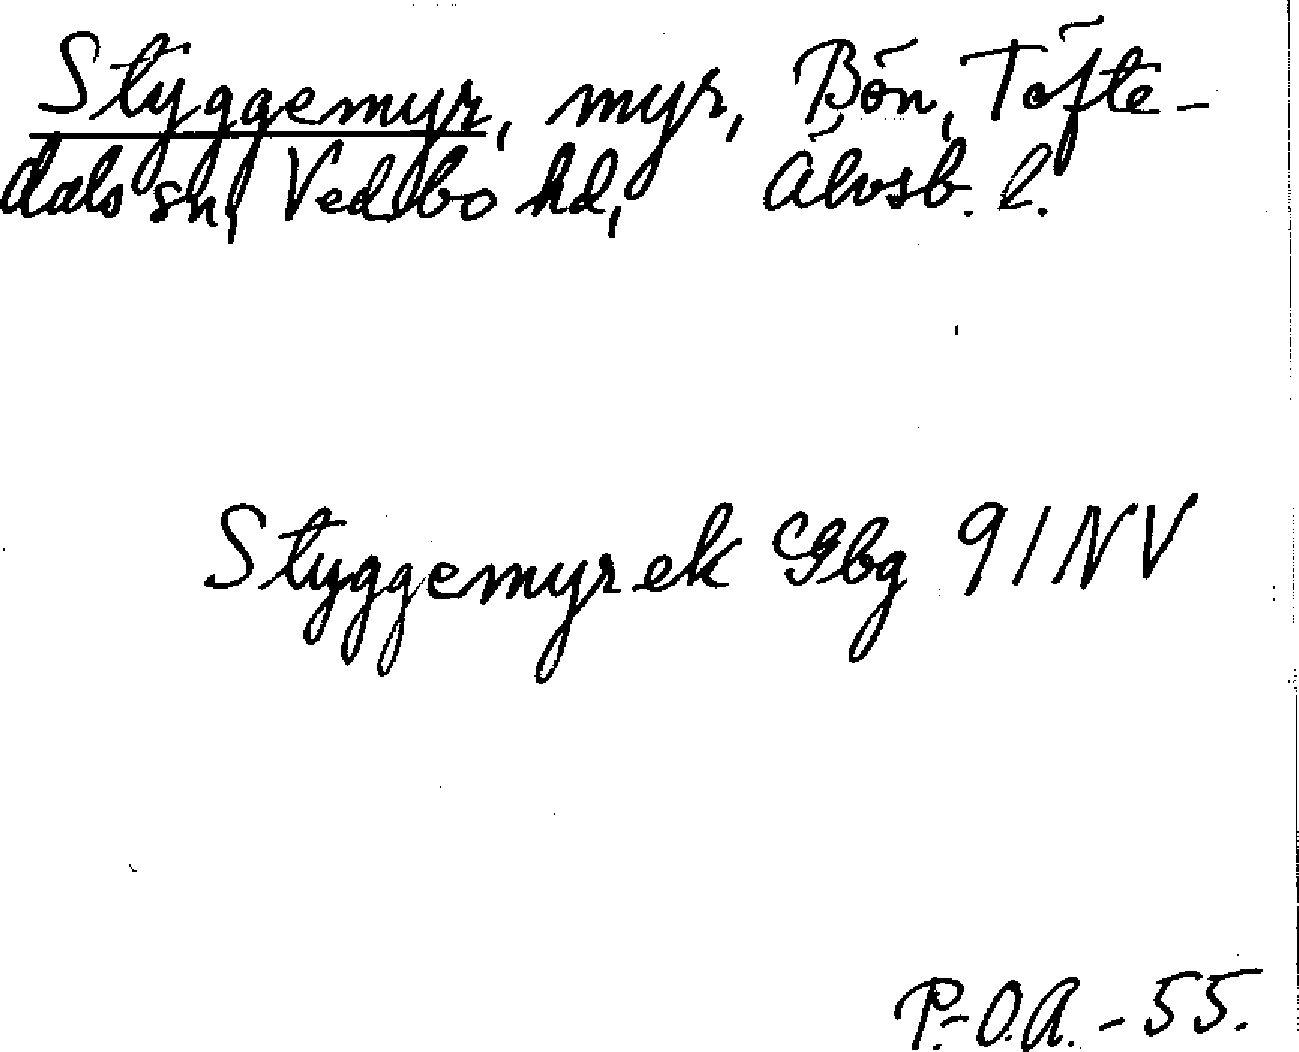 Styggemyr, myr, Bön, Töfte-
dals sn, Vedbo hd, Älvsb. l.
Styggemyr ek Gbg 9 / NV
P.-O.A. - 55.